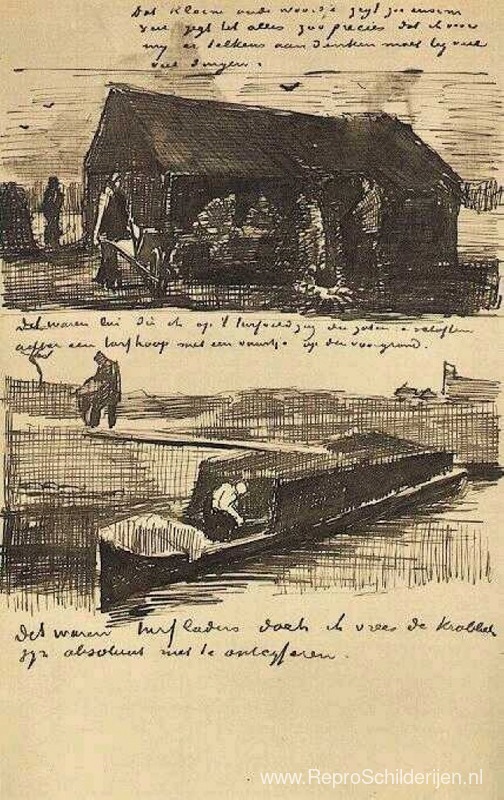 Dat kleine oude woordje zegt zoo enorm
veel zegt het alles zoo precies dat ik voor
my er telkens aan denken moet by veel
veel dingen.
Dit waren lui die ik op 't turfveld zag die zaten
achter een turfhoop met een vuurtje op den voorgrond.
Dit waren turfladers doch ik vrees de krabbels
zyn absoluut niet te ontcyferen.
www.ReproSchilderijen.nl